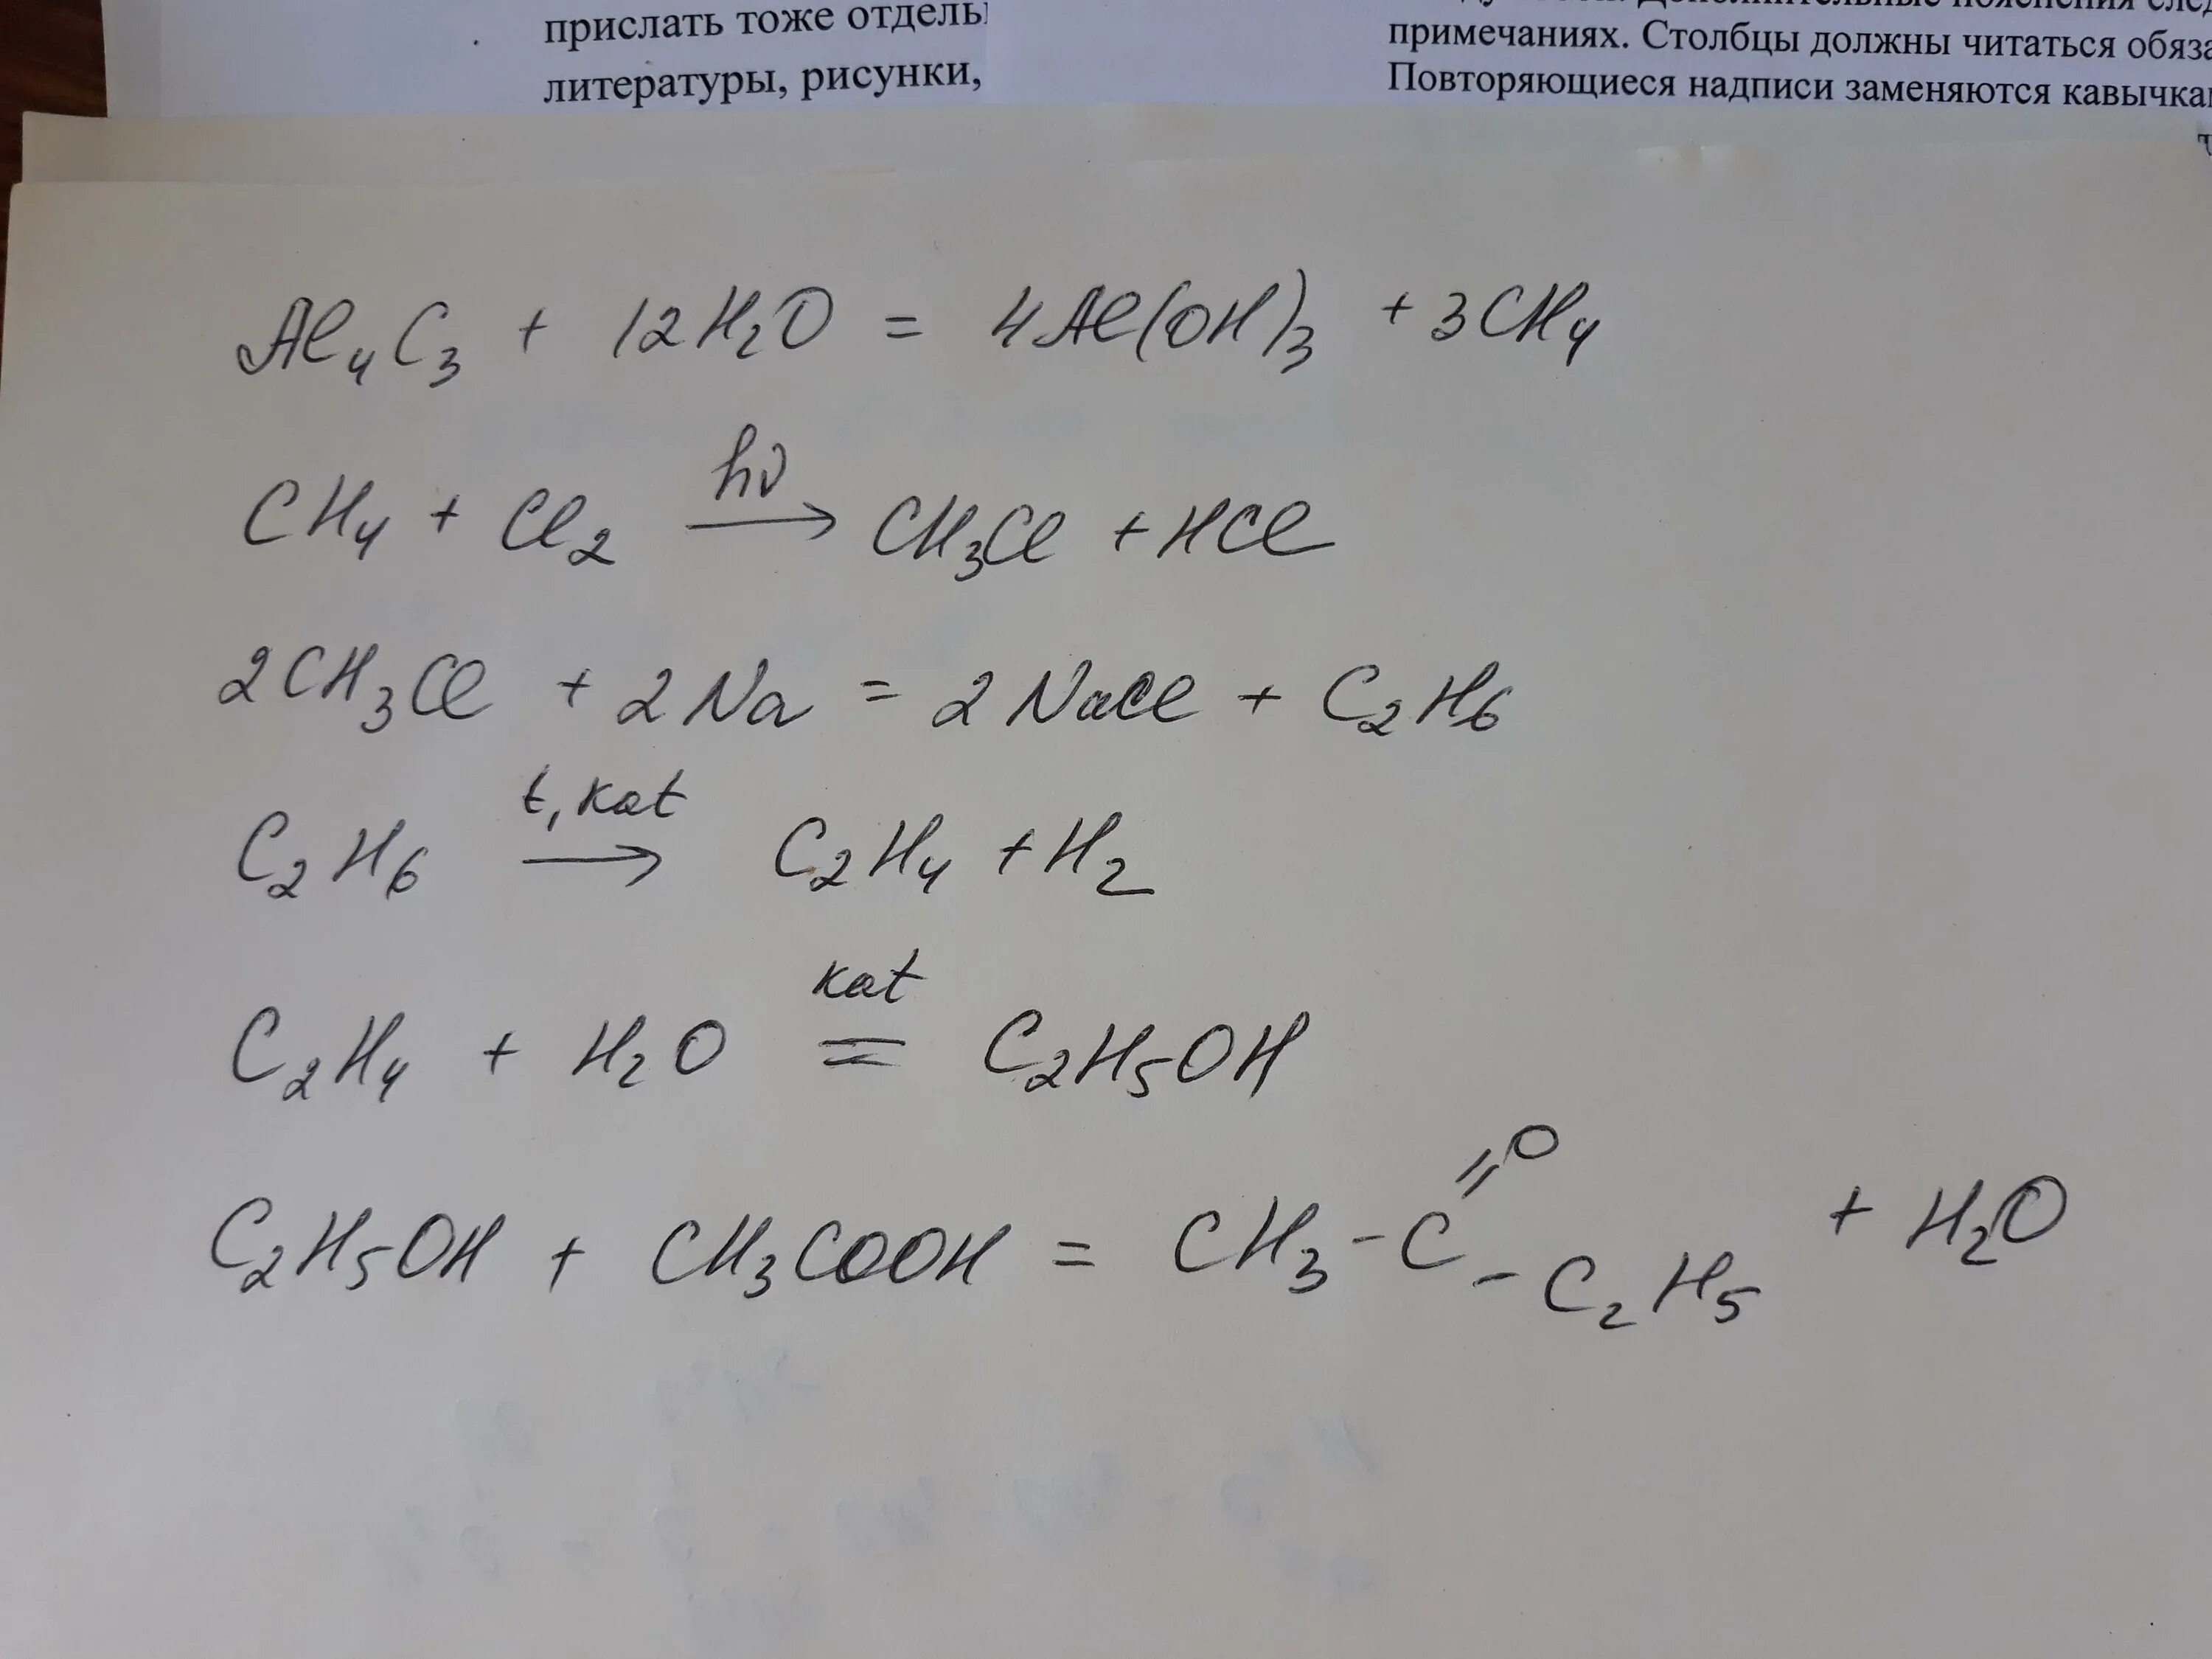 прислать тоже отдель
литературы, рисунки,
примечаниях. Столбцы должны читаться обяза
Повторяющиеся надписи заменяются кавычка
Al₄C₃ + 12H₂O = 4Al(OH)₃ + 3CH₄
hν
CH₄ + Cl₂ → CH₃Cl + HCl
2CH₃Cl + 2Na = 2NaCl + C₂H₆
t, kat
C₂H₆ → C₂H₄ + H₂
kat
C₂H₄ + H₂O = C₂H₅OH
C₂H₅OH + CH₃COOH = CH₃-C(=O)-C₂H₅ + H₂O